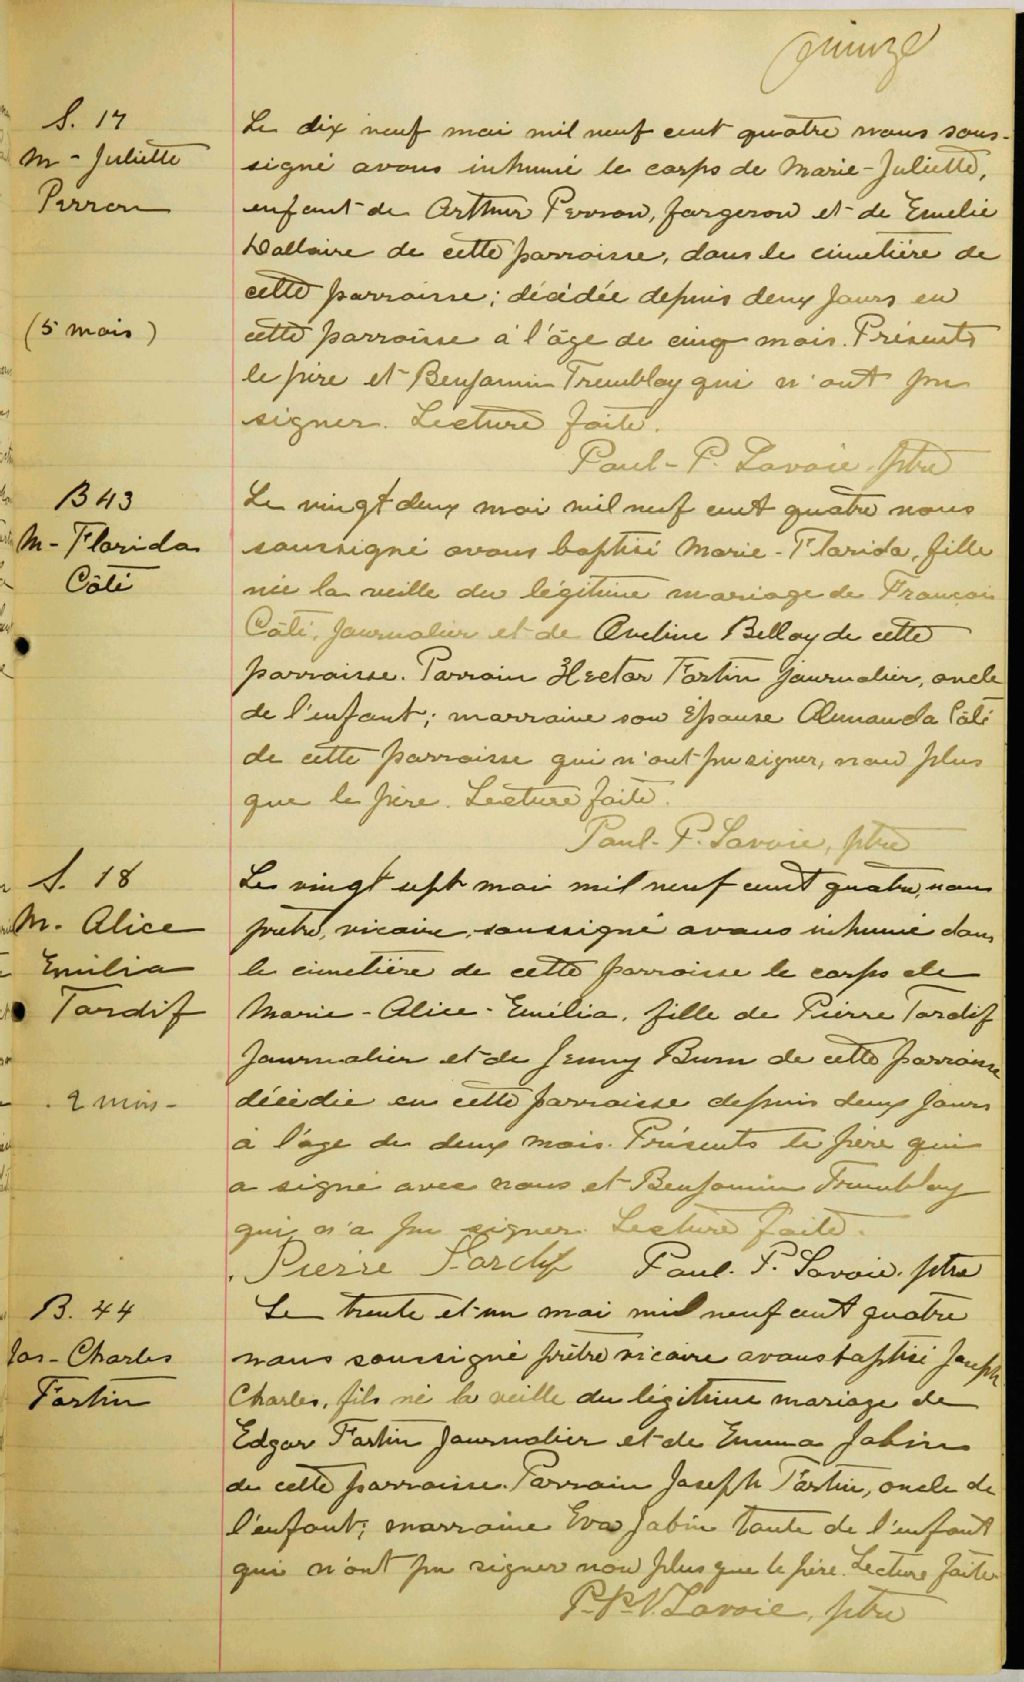 quinze
S. 17
M - Juliette
Perron
(5 mois)
Le dix neuf mai mil neuf cent quatre nous sous-
signé avons inhumé le corps de Marie-Juliette,
enfant de Arthur Perron, forgeron et de Emelie
Dallaire de cette parroisse, dans le cimetière de
cette parroisse; décédée depuis deux jours en
cette parroisse à l'âge de cinq mois. Présents
le père et Benjamin Tremblay qui n'ont pu
signer. Lecture faite.
Paul-P. Lavoie, ptre
B 43
M - Florida
Côté
Le vingt deux mai mil neuf cent quatre nous
soussigné avons baptisé Marie-Florida, fille
née la veille du légitime mariage de François
Côté, journalier et de Aveline Bellay de cette
parroisse. Parrain Hector Fortin journalier, oncle
de l'enfant; marraine son épouse Almanda Côté
de cette parroisse qui n'ont pu signer, non plus
que le père. Lecture faite.
Paul-P. Lavoie, ptre
S. 18
M. Alice
Emilia
Tardif
2 mois -
Le vingt sept mai mil neuf cent quatre, nous
prêtre, vicaire, soussigné avons inhumé dans
le cimetière de cette parroisse le corps de
Marie-Alice-Emélia, fille de Pierre Tardif
journalier et de Jenny Burn de cette parroisse
décédée en cette parroisse depuis deux jours
à l'âge de deux mois. Présents le père qui
a signé avec nous et Benjamin Tremblay
qui n'a pu signer. Lecture faite.
Pierre Tardif Paul. P. Lavoie. ptre
B. 44
Jos-Charles
Fortin
Le trente et un mai mil neuf cent quatre
nous soussigné prêtre vicaire avons baptisé Joseph
Charles, fils né la veille du légitime mariage de
Edgar Fortin journalier et de Emma Jobin
de cette parroisse. Parrain Joseph Fortin, oncle de
l'enfant; marraine Eva Jobin tante de l'enfant
qui n'ont pu signer non plus que le père. Lecture faite
P.-P.-V. Lavoie, ptre